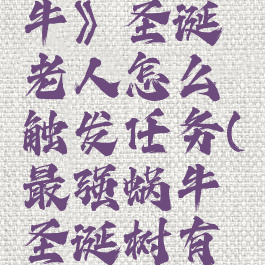 牛》圣诞
老人怎么
触发任务(
最强蜗牛
圣诞树有